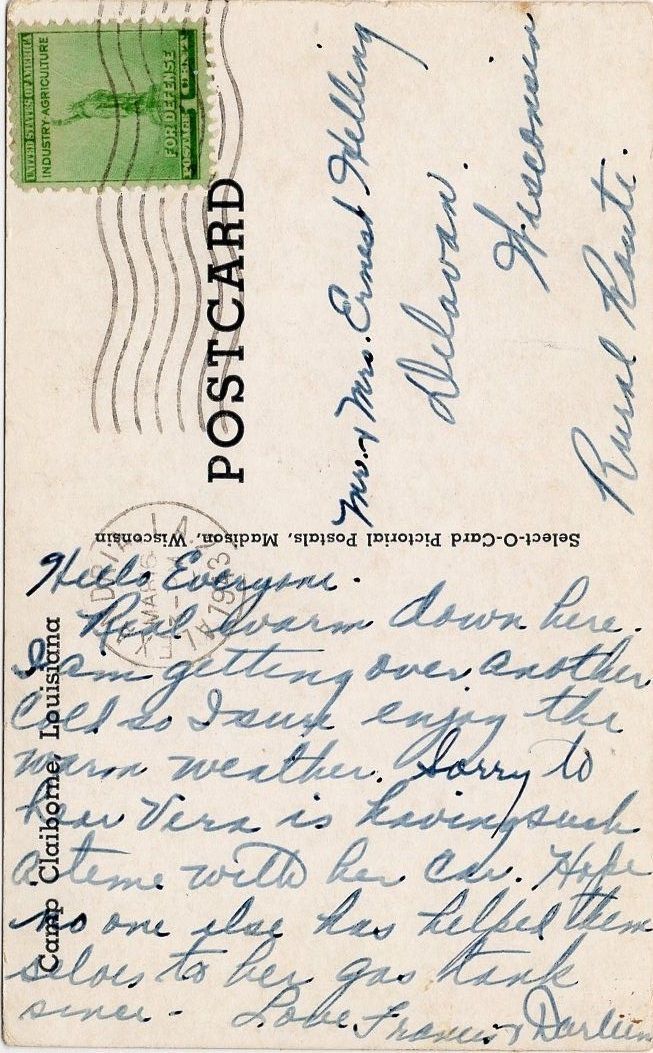 UNITED STATES OF AMERICA
INDUSTRY·AGRICULTURE
FOR DEFENSE
POSTAGE 1 CENT
POSTCARD
Mr. & Mrs. Ernest Helling
Delavan.
Wisconsin
Rural Route.
Select-O-Card Pictorial Postals, Madison, Wisconsin
LA.
MAR 5
1943
Camp Claiborne, Louisiana
Hello Everyone.
Real warm down here.
I am getting over another
cold so I sure enjoy the
warm weather. Sorry to
hear Vera is having such
a time with her car. Hope
no one else has helped them
selves to her gas tank
since. Love Francis & Darleen